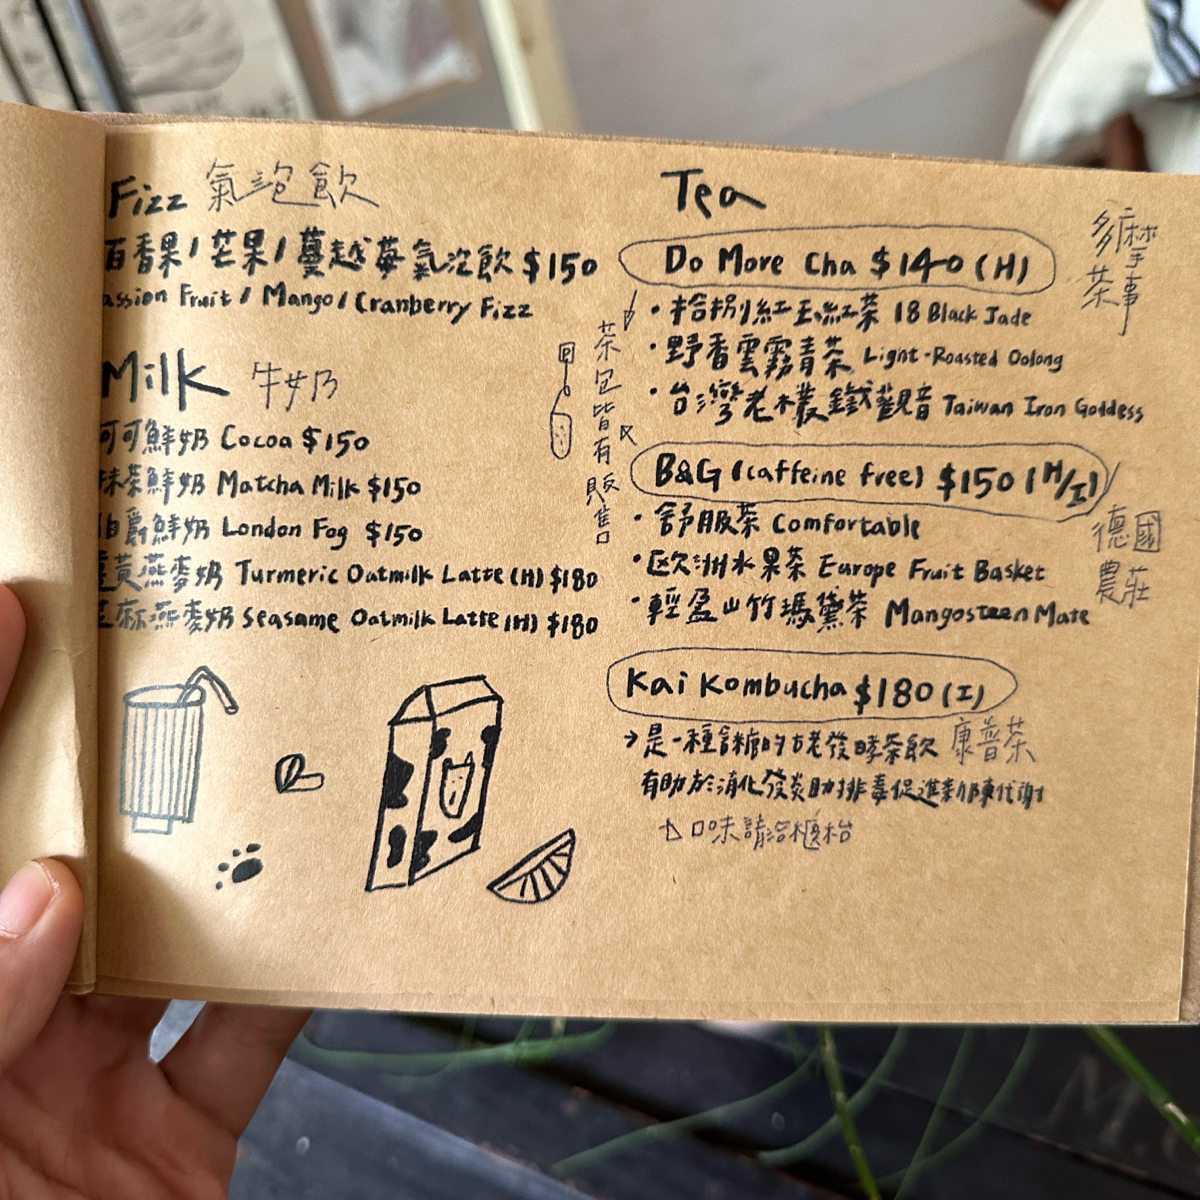 Fizz 氣泡飲
百香果/芒果/蔓越莓氣泡飲 $150
assion Fruit / Mango / Cranberry Fizz
Milk 牛奶
可可鮮奶 Cocoa $150
抹茶鮮奶 Matcha Milk $150
伯爵鮮奶 London Fog $150
薑黃燕麥奶 Turmeric Oatmilk Latte (H) $180
芝麻燕麥奶 Seasame Oatmilk Latte (H) $180
茶包皆有販售
Tea
Do More Cha $140 (H)
多麼
茶事
·拾捌紅玉紅茶 18 Black Jade
·野香雲霧青茶 Light-Roasted Oolong
·台灣老欉鐵觀音 Taiwan Iron Goddess
B&G (caffeine free) $150 (H/I)
德國
農莊
·舒服茶 Comfortable
·歐洲水果茶 Europe Fruit Basket
·輕盈山竹瑪黛茶 Mangosteen Mate
Kai Kombucha $180 (I)
→是一種含糖的古老發酵茶飲 康普茶
有助於消化發炎助排毒促進新陳代謝
口味請洽櫃枱